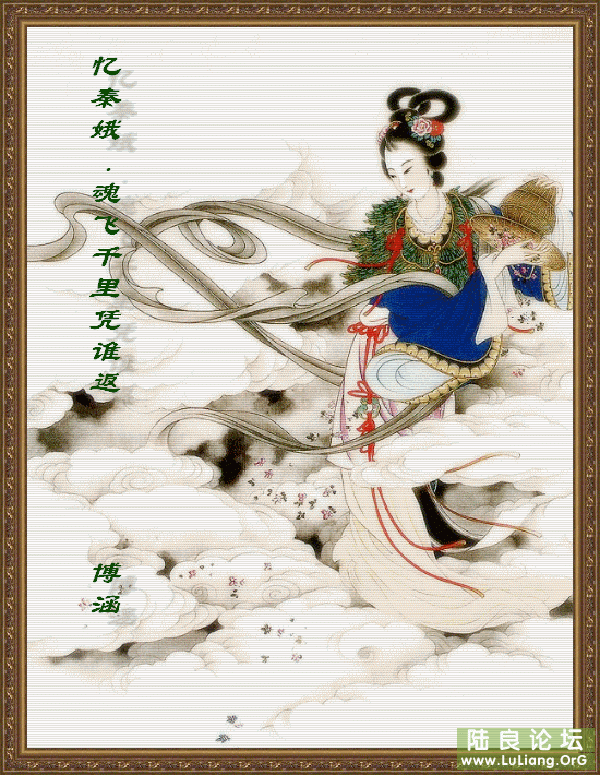 忆秦娥·魂飞千里凭谁返
博涵
陆良论坛
www.LuLiang.OrG